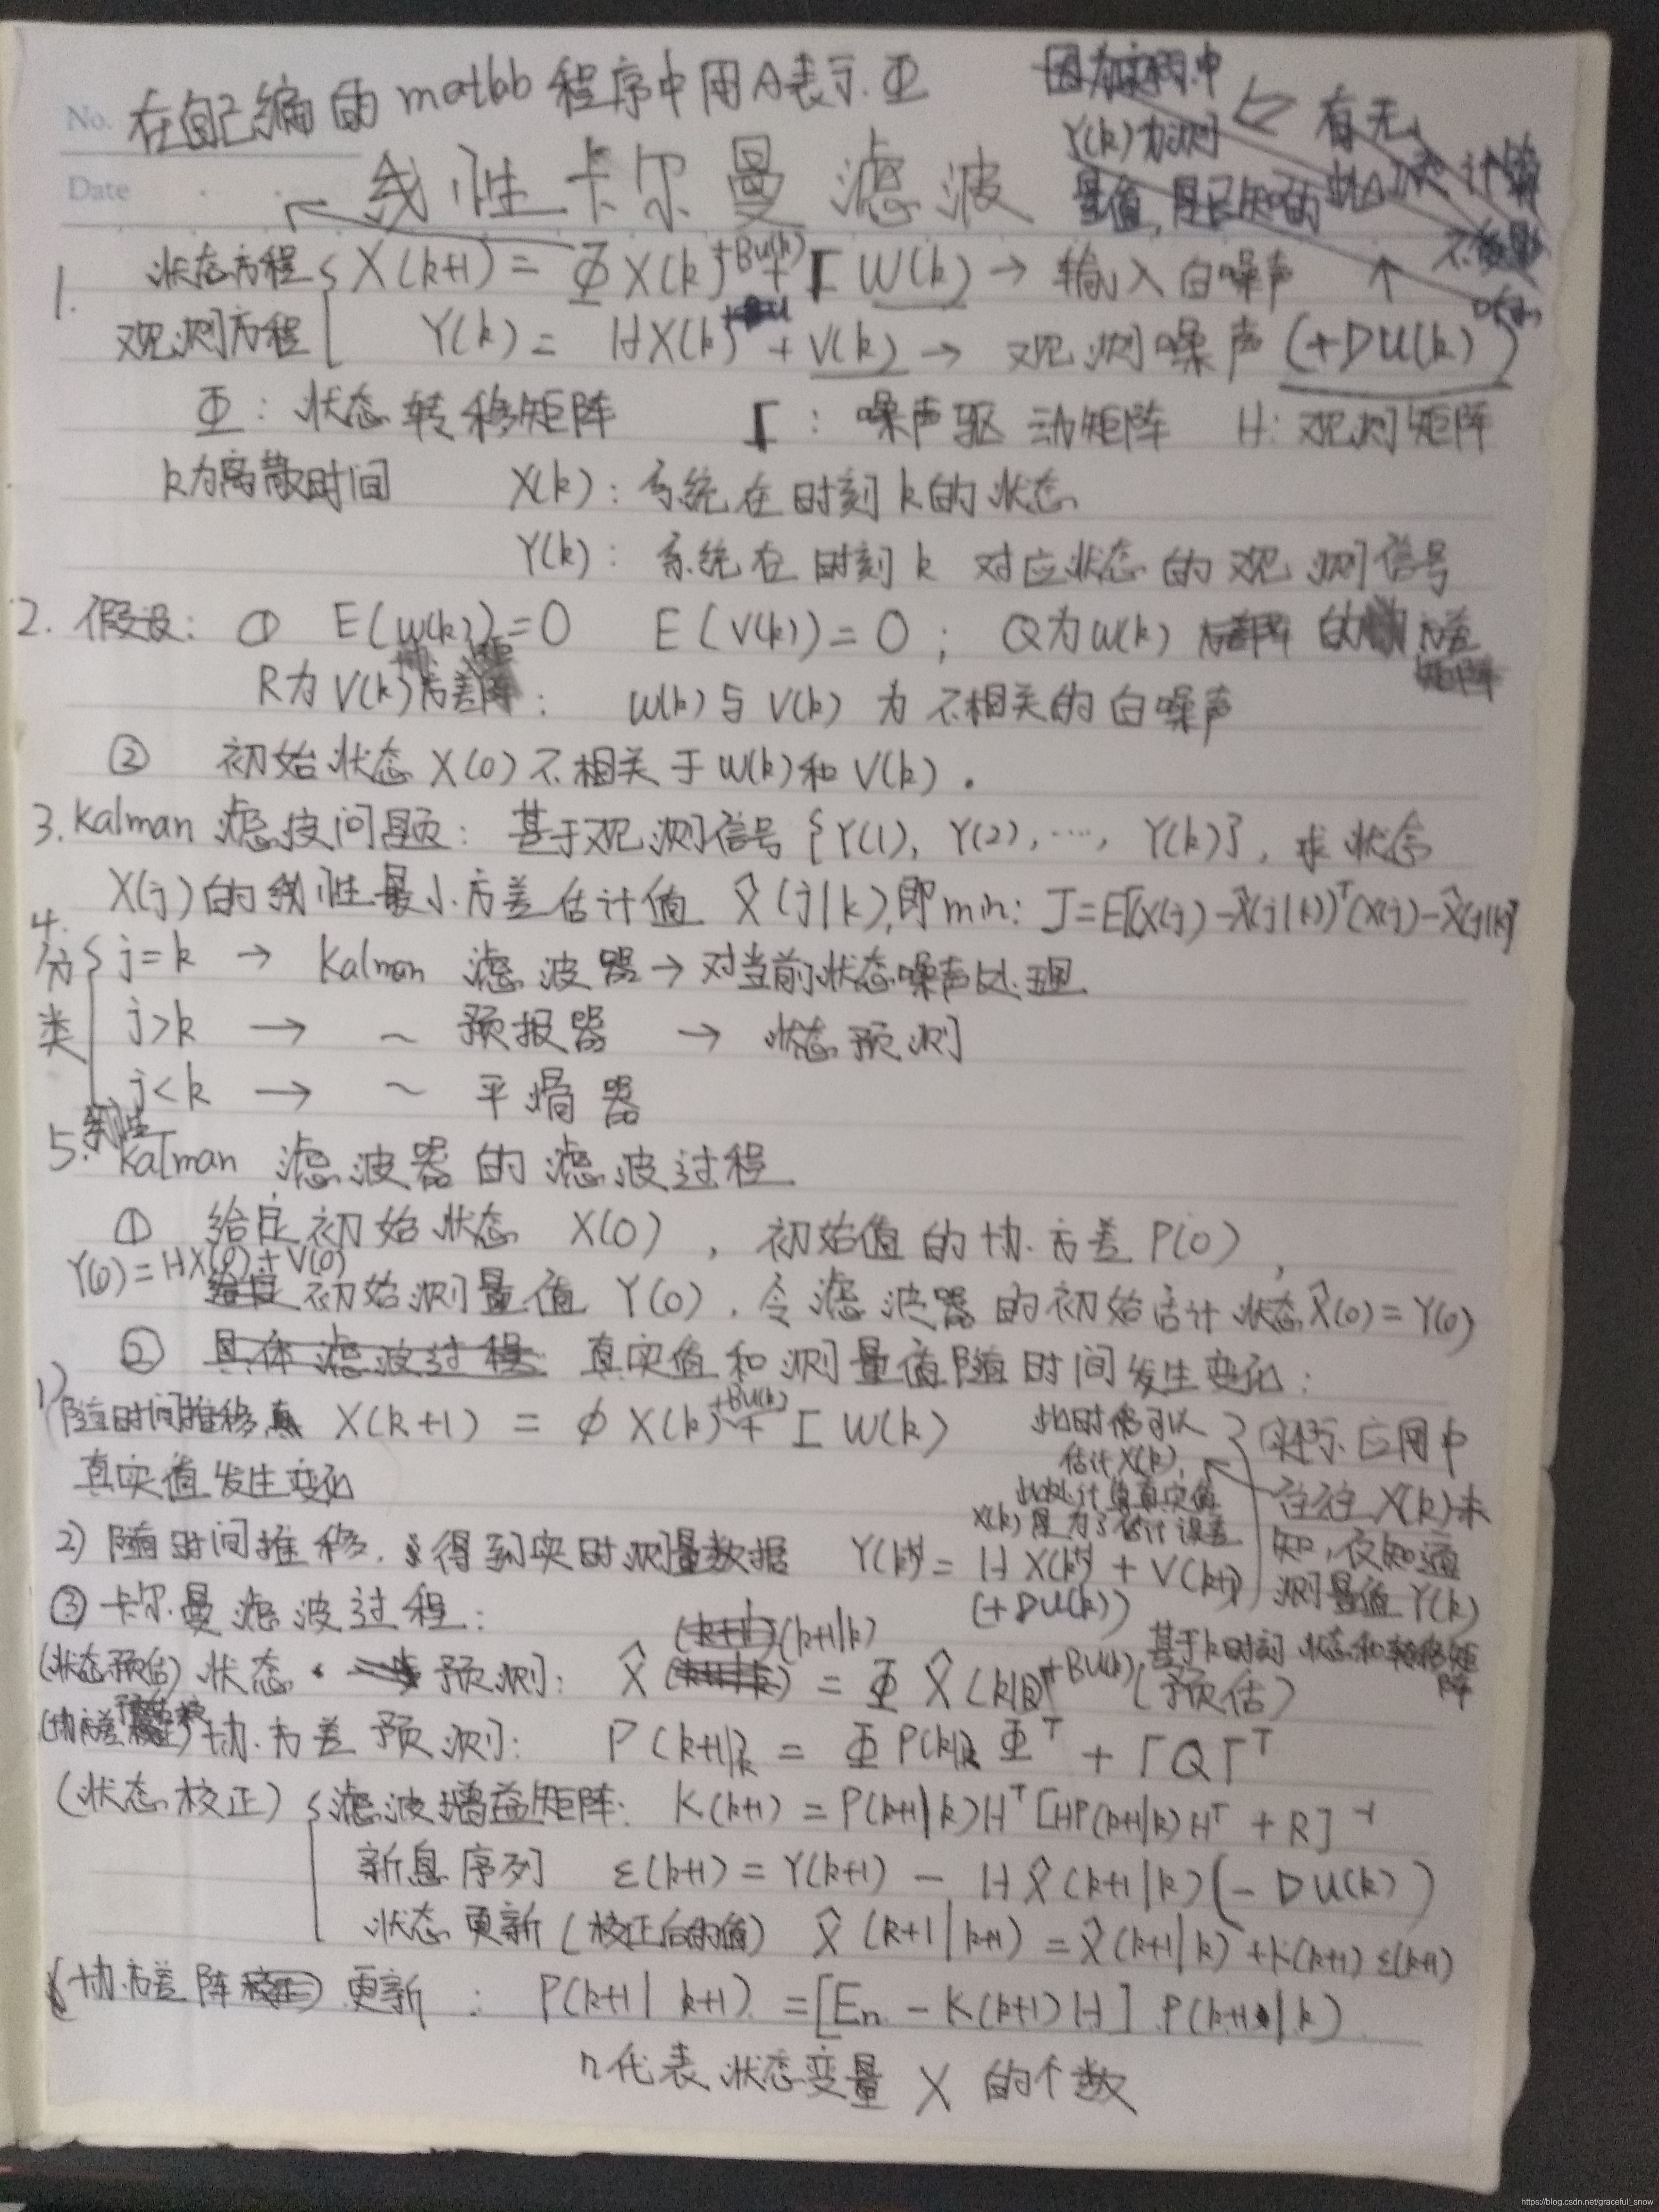 No. 在自己编的matlab程序中用A表示Φ
Date
因为实际中
Y(k)为测
量值,是已知的
⇐ 有无
线性卡尔曼滤波
1. 状态方程 { X(k+1) = ΦX(k) +BU(k) + Γ W(k) → 输入白噪声
观测方程 Y(k) = HX(k) + V(k) → 观测噪声 (+DU(k))
Φ: 状态转移矩阵 Γ: 噪声驱动矩阵 H: 观测矩阵
k为离散时间 X(k): 系统在时刻k的状态
Y(k): 系统在时刻k 对应状态的观测信号
2. 假设: ① E(W(k))=0 E(V(k))=0; Q为W(k) 的 方差矩阵
R为V(k)方差阵; W(k)与V(k)为不相关的白噪声
② 初始状态X(0)不相关于W(k)和V(k).
3. Kalman 滤波问题: 基于观测信号{Y(1), Y(2), ..., Y(k)}, 求状态
X(j)的线性最小方差估计值 X̂(j|k),即min: J=E[(X(j)-X̂(j|k))ᵀ(X(j)-X̂(j|k))]
4. 分类 { j=k → Kalman 滤波器 → 对当前状态噪声处理
j>k → ~ 预报器 → 状态预测
j<k → ~ 平滑器
5. 线性Kalman 滤波器的滤波过程
① 给定初始状态 X(0), 初始值的协方差P(0),
Y(0)=HX(0)+V(0)
给定初始测量值 Y(0), 令滤波器的初始估计状态X̂(0)=Y(0)
② 具体滤波过程 真实值和测量值随时间发生变化:
1) 随时间推移,真 X(k+1) = φ X(k) +BU(k) + Γ W(k)
真实值发生变化
此时你可以
估计X(k),
此处计算真实值
X(k)是为了估计误差
实际应用中
往往X(k)未
知,仅知道
测量值Y(k)
2) 随时间推移, 得到实时测量数据 Y(k+1) = H X(k+1) + V(k+1)
(+DU(k))
③ 卡尔曼滤波过程:
(状态预估) 状态 预测: X̂(k+1|k) = Φ X̂(k|k) +BU(k) (预估)
基于k时刻状态和转移矩阵
(协方差 协方差预测: P(k+1|k) = Φ P(k|k) Φᵀ + ΓQΓᵀ
(状态校正) { 滤波增益矩阵: K(k+1) = P(k+1|k)Hᵀ[HP(k+1|k)Hᵀ + R]⁻¹
新息序列 ε(k+1) = Y(k+1) - HX̂(k+1|k)(-DU(k))
状态更新(校正后的值) X̂(k+1|k+1) = X̂(k+1|k)+K(k+1)ε(k+1)
(协方差阵 更新: P(k+1|k+1) = [En - K(k+1)H] P(k+1|k)
n代表状态变量X的个数
https://blog.csdn.net/graceful_snow